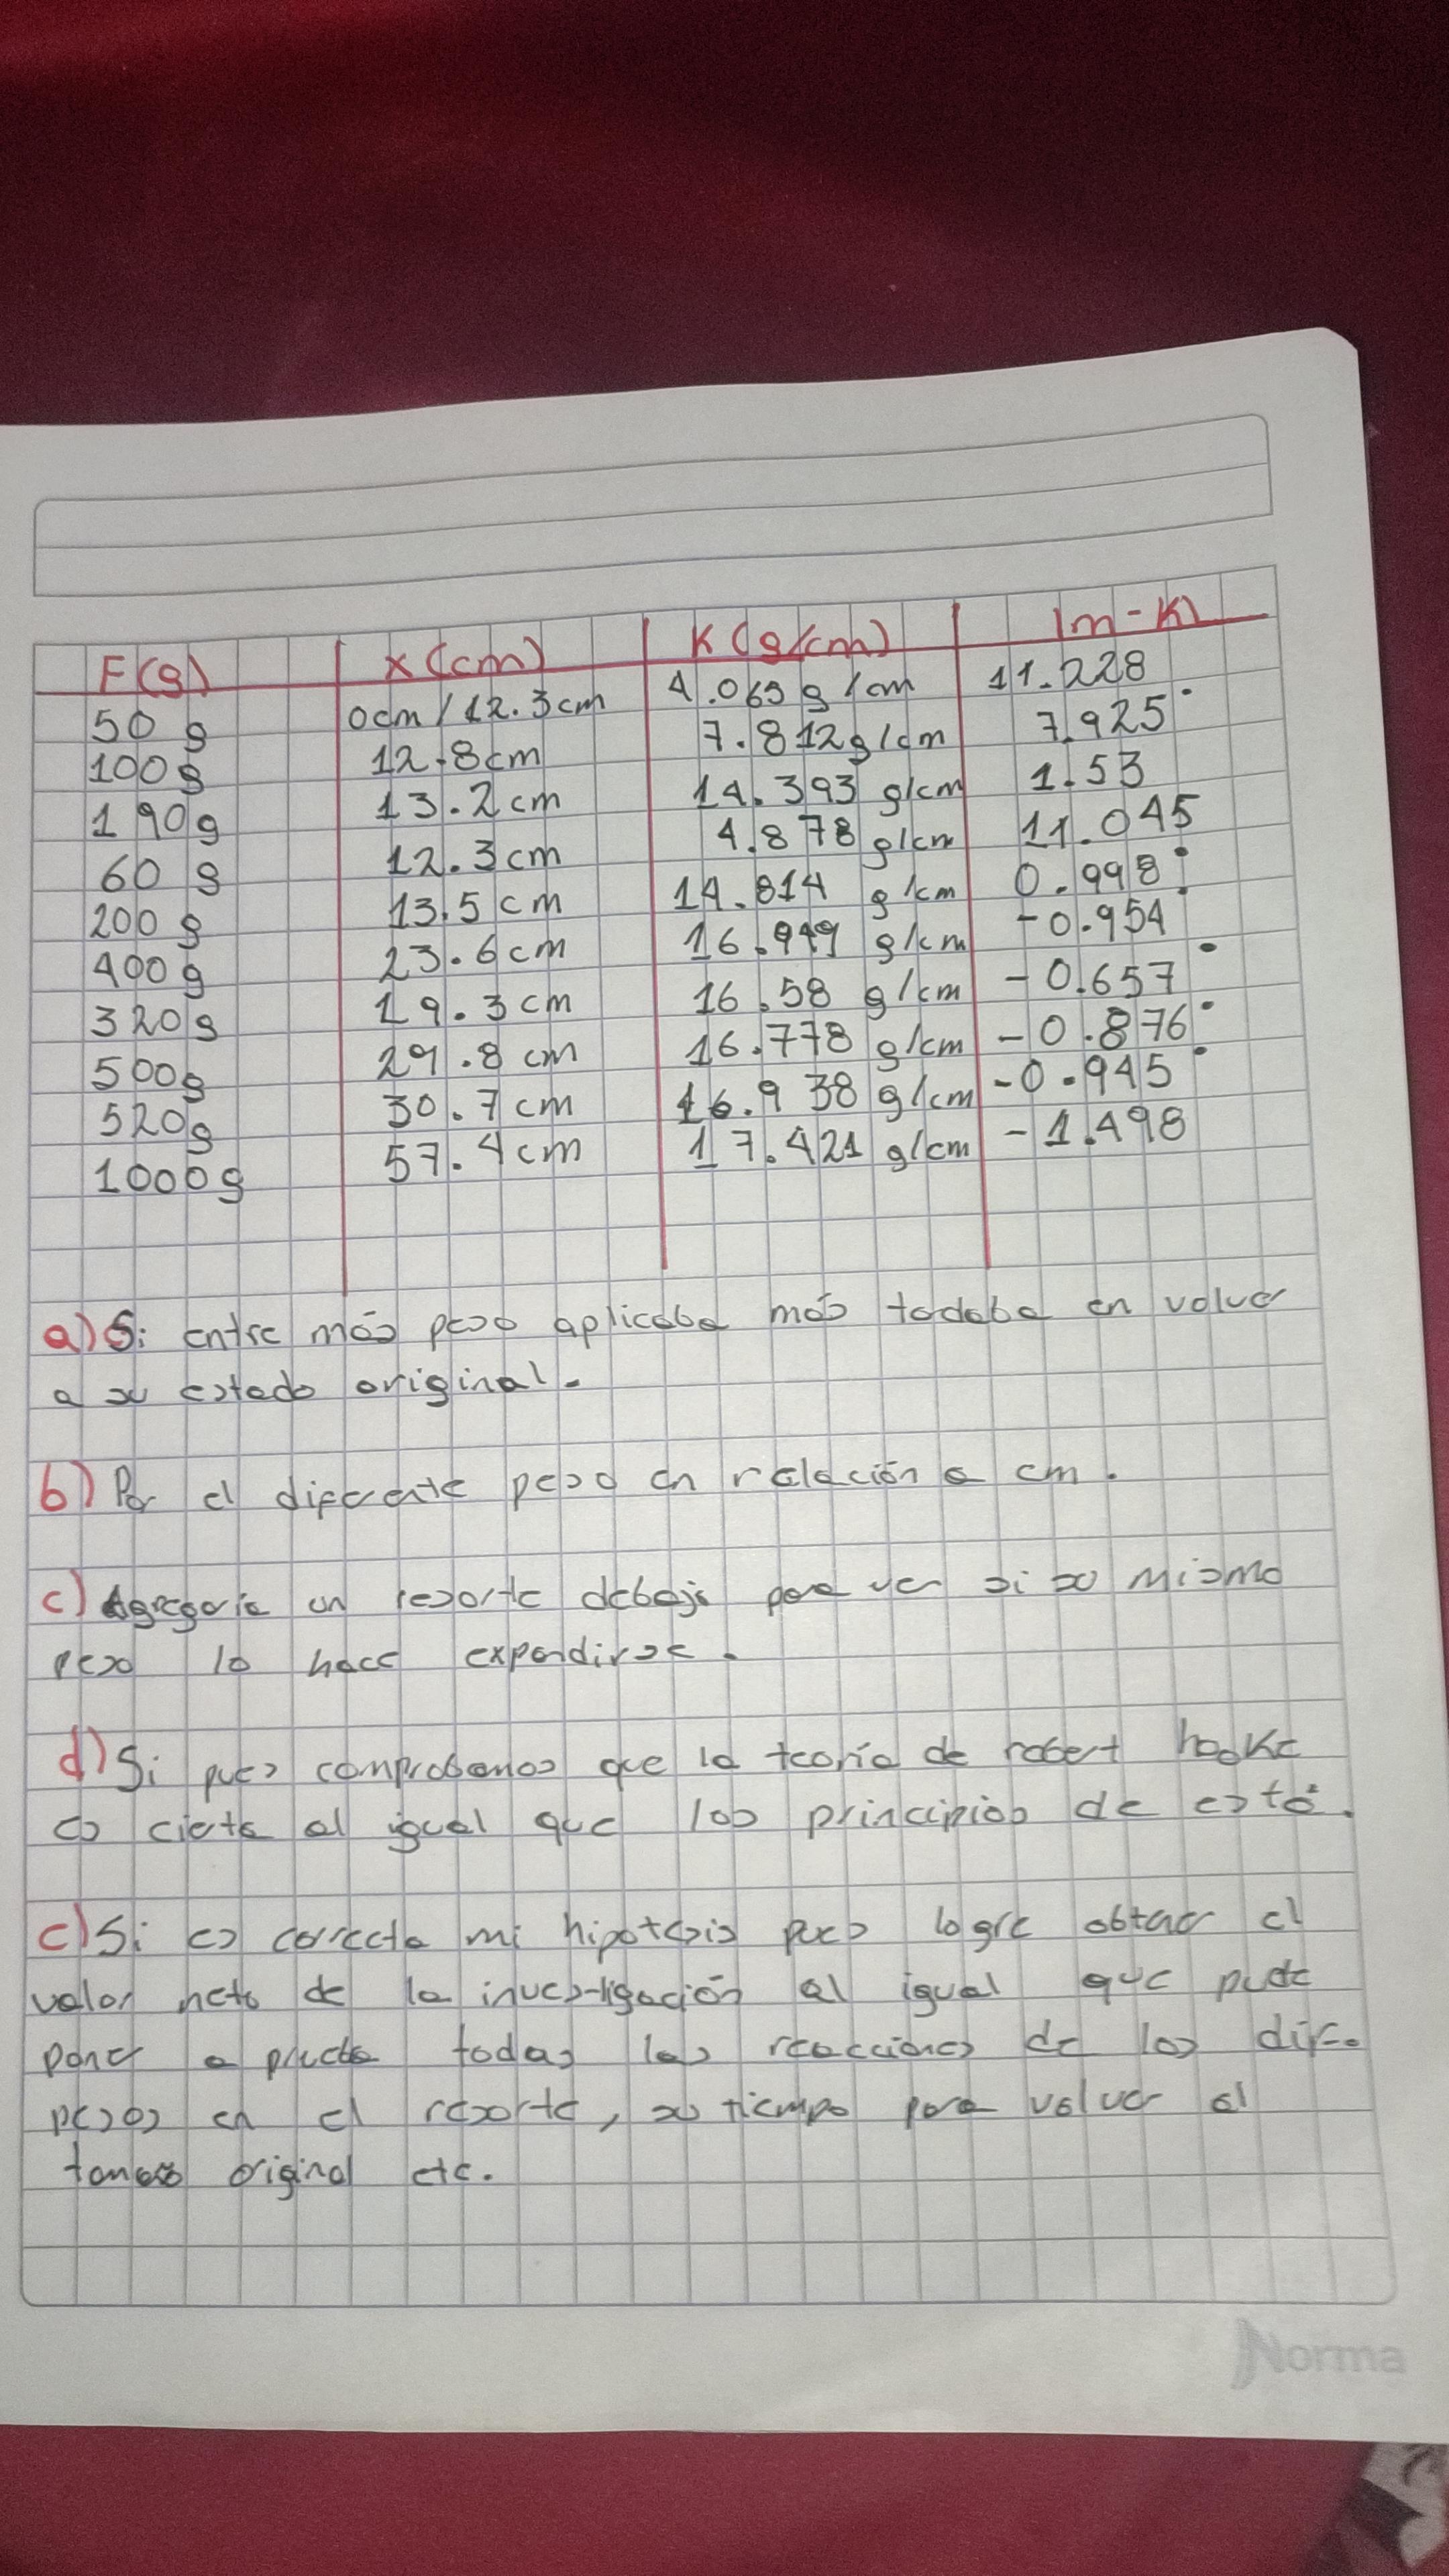 F(g) x(cm) K(g/cm) |m-K|
50 g 0cm/12.3cm 4.065 g/cm 11.228
100g 12.8cm 7.812g/cm 7.925
190g 13.2cm 14.393 g/cm 1.53
60 g 12.3cm 4.878 g/cm 11.045
200 g 13.5cm 14.814 g/cm 0.998
400g 23.6cm 16.949 g/cm -0.954
320g 19.3cm 16.58 g/cm -0.657
500g 29.8cm 16.778 g/cm -0.876
520g 30.7cm 16.938 g/cm -0.945
1000g 57.4cm 17.421 g/cm -1.498
a) Si entre más peso aplicaba más todaba en volver
a su estado original.
b) Por el diferente peso en relación a cm.
c) Agregaria un resorte debajo para ver si su mismo
peso lo hace expandirse.
d) Si pues comprobamos que la teoria de robert hooke
es cierta al igual que los principios de esta.
e) Si es correcta mi hipotesis pues logre obtener el
valor neto de la investigación al igual que pude
poner a prueba todas las reacciones de los dife.
pesos en el resorte, su tiempo para volver al
tamaño original etc.
Norma